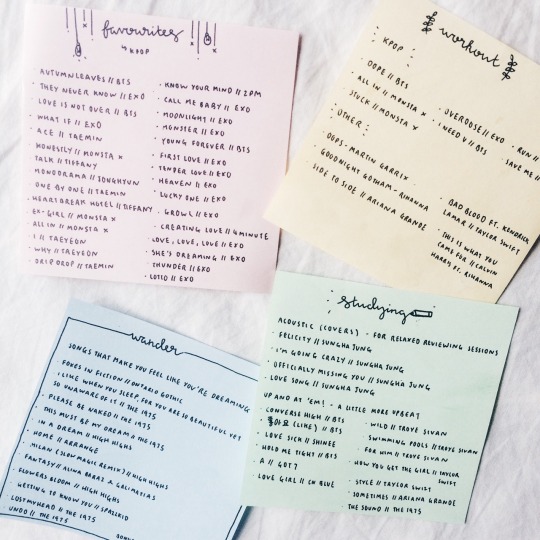 favourites
↳ KPOP
AUTUMN LEAVES // BTS
THEY NEVER KNOW // EXO
LOVE IS NOT OVER // BTS
WHAT IF // EXO
ACE // TAEMIN
HONESTLY // MONSTA X
TALK // TIFFANY
MONODRAMA // JONGHYUN
ONE BY ONE // TAEMIN
HEARTBREAK HOTEL // TIFFANY
EX-GIRL // MONSTA X
ALL IN // MONSTA X
I // TAEYEON
WHY // TAEYEON
DRIP DROP // TAEMIN
KNOW YOUR MIND // 2PM
CALL ME BABY // EXO
MOONLIGHT // EXO
MONSTER // EXO
YOUNG FOREVER // BTS
FIRST LOVE // EXO
TENDER LOVE // EXO
HEAVEN // EXO
LUCKY ONE // EXO
GROWL // EXO
CREATING LOVE // 4MINUTE
LOVE, LOVE, LOVE // EXO
SHE'S DREAMING // EXO
THUNDER // EXO
LOTTO // EXO
workout
KPOP
DOPE // BTS
ALL IN // MONSTA X
STUCK // MONSTA X
OVERDOSE // EXO
I NEED U // BTS
RUN //
SAVE ME //
OTHER
OOPS - MARTIN GARRIX
GOODNIGHT GOTHAM - RIHANNA
SIDE TO SIDE // ARIANA GRANDE
BAD BLOOD FT. KENDRICK
LAMAR // TAYLOR SWIFT
THIS IS WHAT YOU
CAME FOR // CALVIN
HARRY FT. RIHANNA
wander
SONGS THAT MAKE YOU FEEL LIKE YOU'RE DREAMING
FOXES IN FICTION // ONTARIO GOTHIC
I LIKE WHEN YOU SLEEP, FOR YOU ARE SO BEAUTIFUL YET
SO UNAWARE OF IT // THE 1975
PLEASE BE NAKED // THE 1975
THIS MUST BE MY DREAM // THE 1975
IN A DREAM // HIGH HIGHS
HOME // ARRANGE
MILAN (SLOW MAGIC REMIX) // HIGH HIGHS
FANTASY // ALINA BARAZ & GALIMATIAS
FLOWERS BLOOM // HIGH HIGHS
GETTING TO KNOW YOU // SPAZZKID
LOSTMYHEAD // THE 1975
UNDO // THE 1975
studying
ACOUSTIC (COVERS) - FOR RELAXED REVIEWING SESSIONS
FELICITY // SUNGHA JUNG
I'M GOING CRAZY // SUNGHA JUNG
OFFICIALLY MISSING YOU // SUNGHA JUNG
LOVE SONG // SUNGHA JUNG
UP AND AT 'EM! - A LITTLE MORE UPBEAT
CONVERSE HIGH // BTS
좋아요 (LIKE) // BTS
LOVE SICK // SHINEE
HOLD ME TIGHT // BTS
A // GOT7
LOVE GIRL // CN BLUE
WILD // TROYE SIVAN
SWIMMING POOLS // TROYE SIVAN
FOR HIM // TROYE SIVAN
HOW YOU GET THE GIRL // TAYLOR
SWIFT
STYLE // TAYLOR SWIFT
SOMETIMES // ARIANA GRANDE
THE SOUND // THE 1975